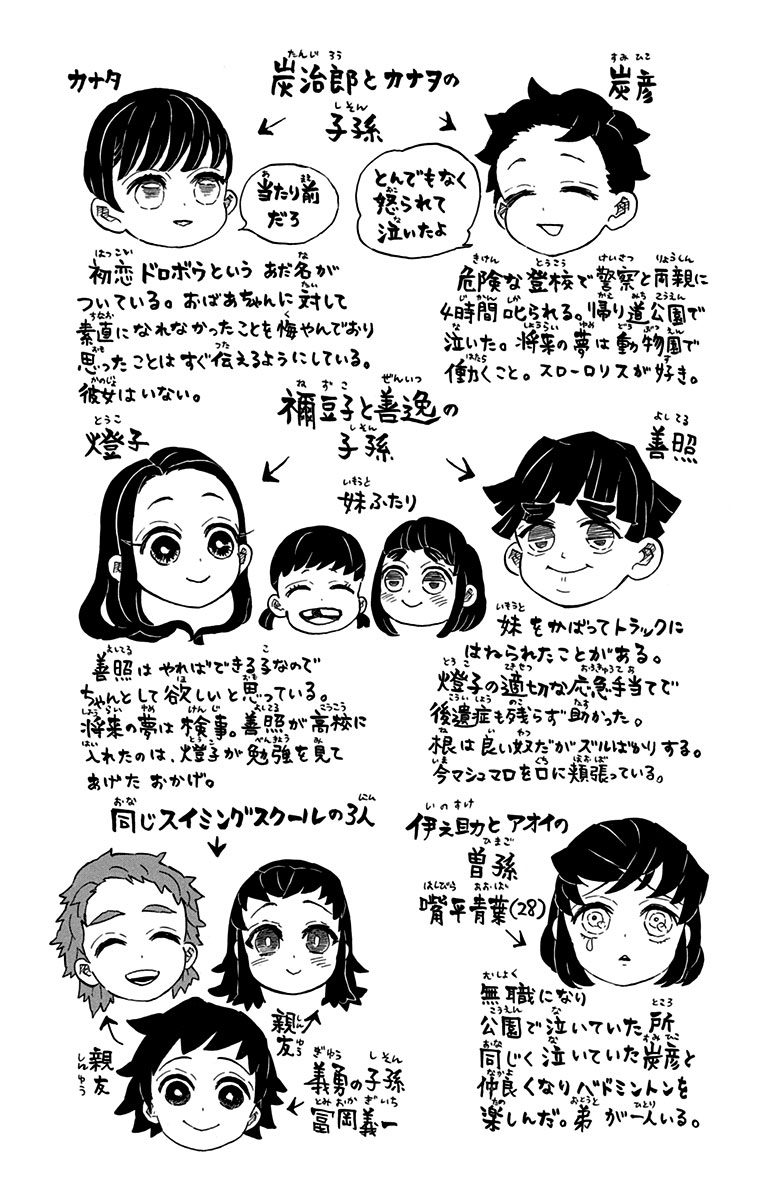 炭治郎とカナヲの
子孫
カナタ
当たり前
だろ
初恋ドロボウという あだ名が
ついている。おばあちゃんに対して
素直になれなかったことも悔やんでおり
思ったことはすぐ伝えるようにしている。
彼女はいない。
炭彦
とんでもなく
怒られて
泣いたよ
危険な登校で警察と両親に
4時間叱られる。帰り道公園で
泣いた。将来の夢は動物園で
働くこと。スローロリスが好き。
禰豆子と善逸の
子孫
燈子
妹ふたり
善照はやればできる子なので
ちゃんとして欲しいと思っている。
将来の夢は検事。善照が高校に
入れたのは、燈子が勉強を見て
あげたおかげ。
善照
妹をかばってトラックに
はねられたことがある。
燈子の適切な応急手当てで
後遺症も残らず助かった。
根は良い奴だがズルばかりする。
今マシュマロを口に頬張っている。
同じスイミングスクールの3人
親友
親友
義勇の子孫
冨岡義一
伊之助とアオイの
曽孫
嘴平青葉(28)
無職になり
公園で泣いていた所
同じく泣いていた炭彦と
仲良くなりベドミントンを
楽しんだ。弟が一人いる。